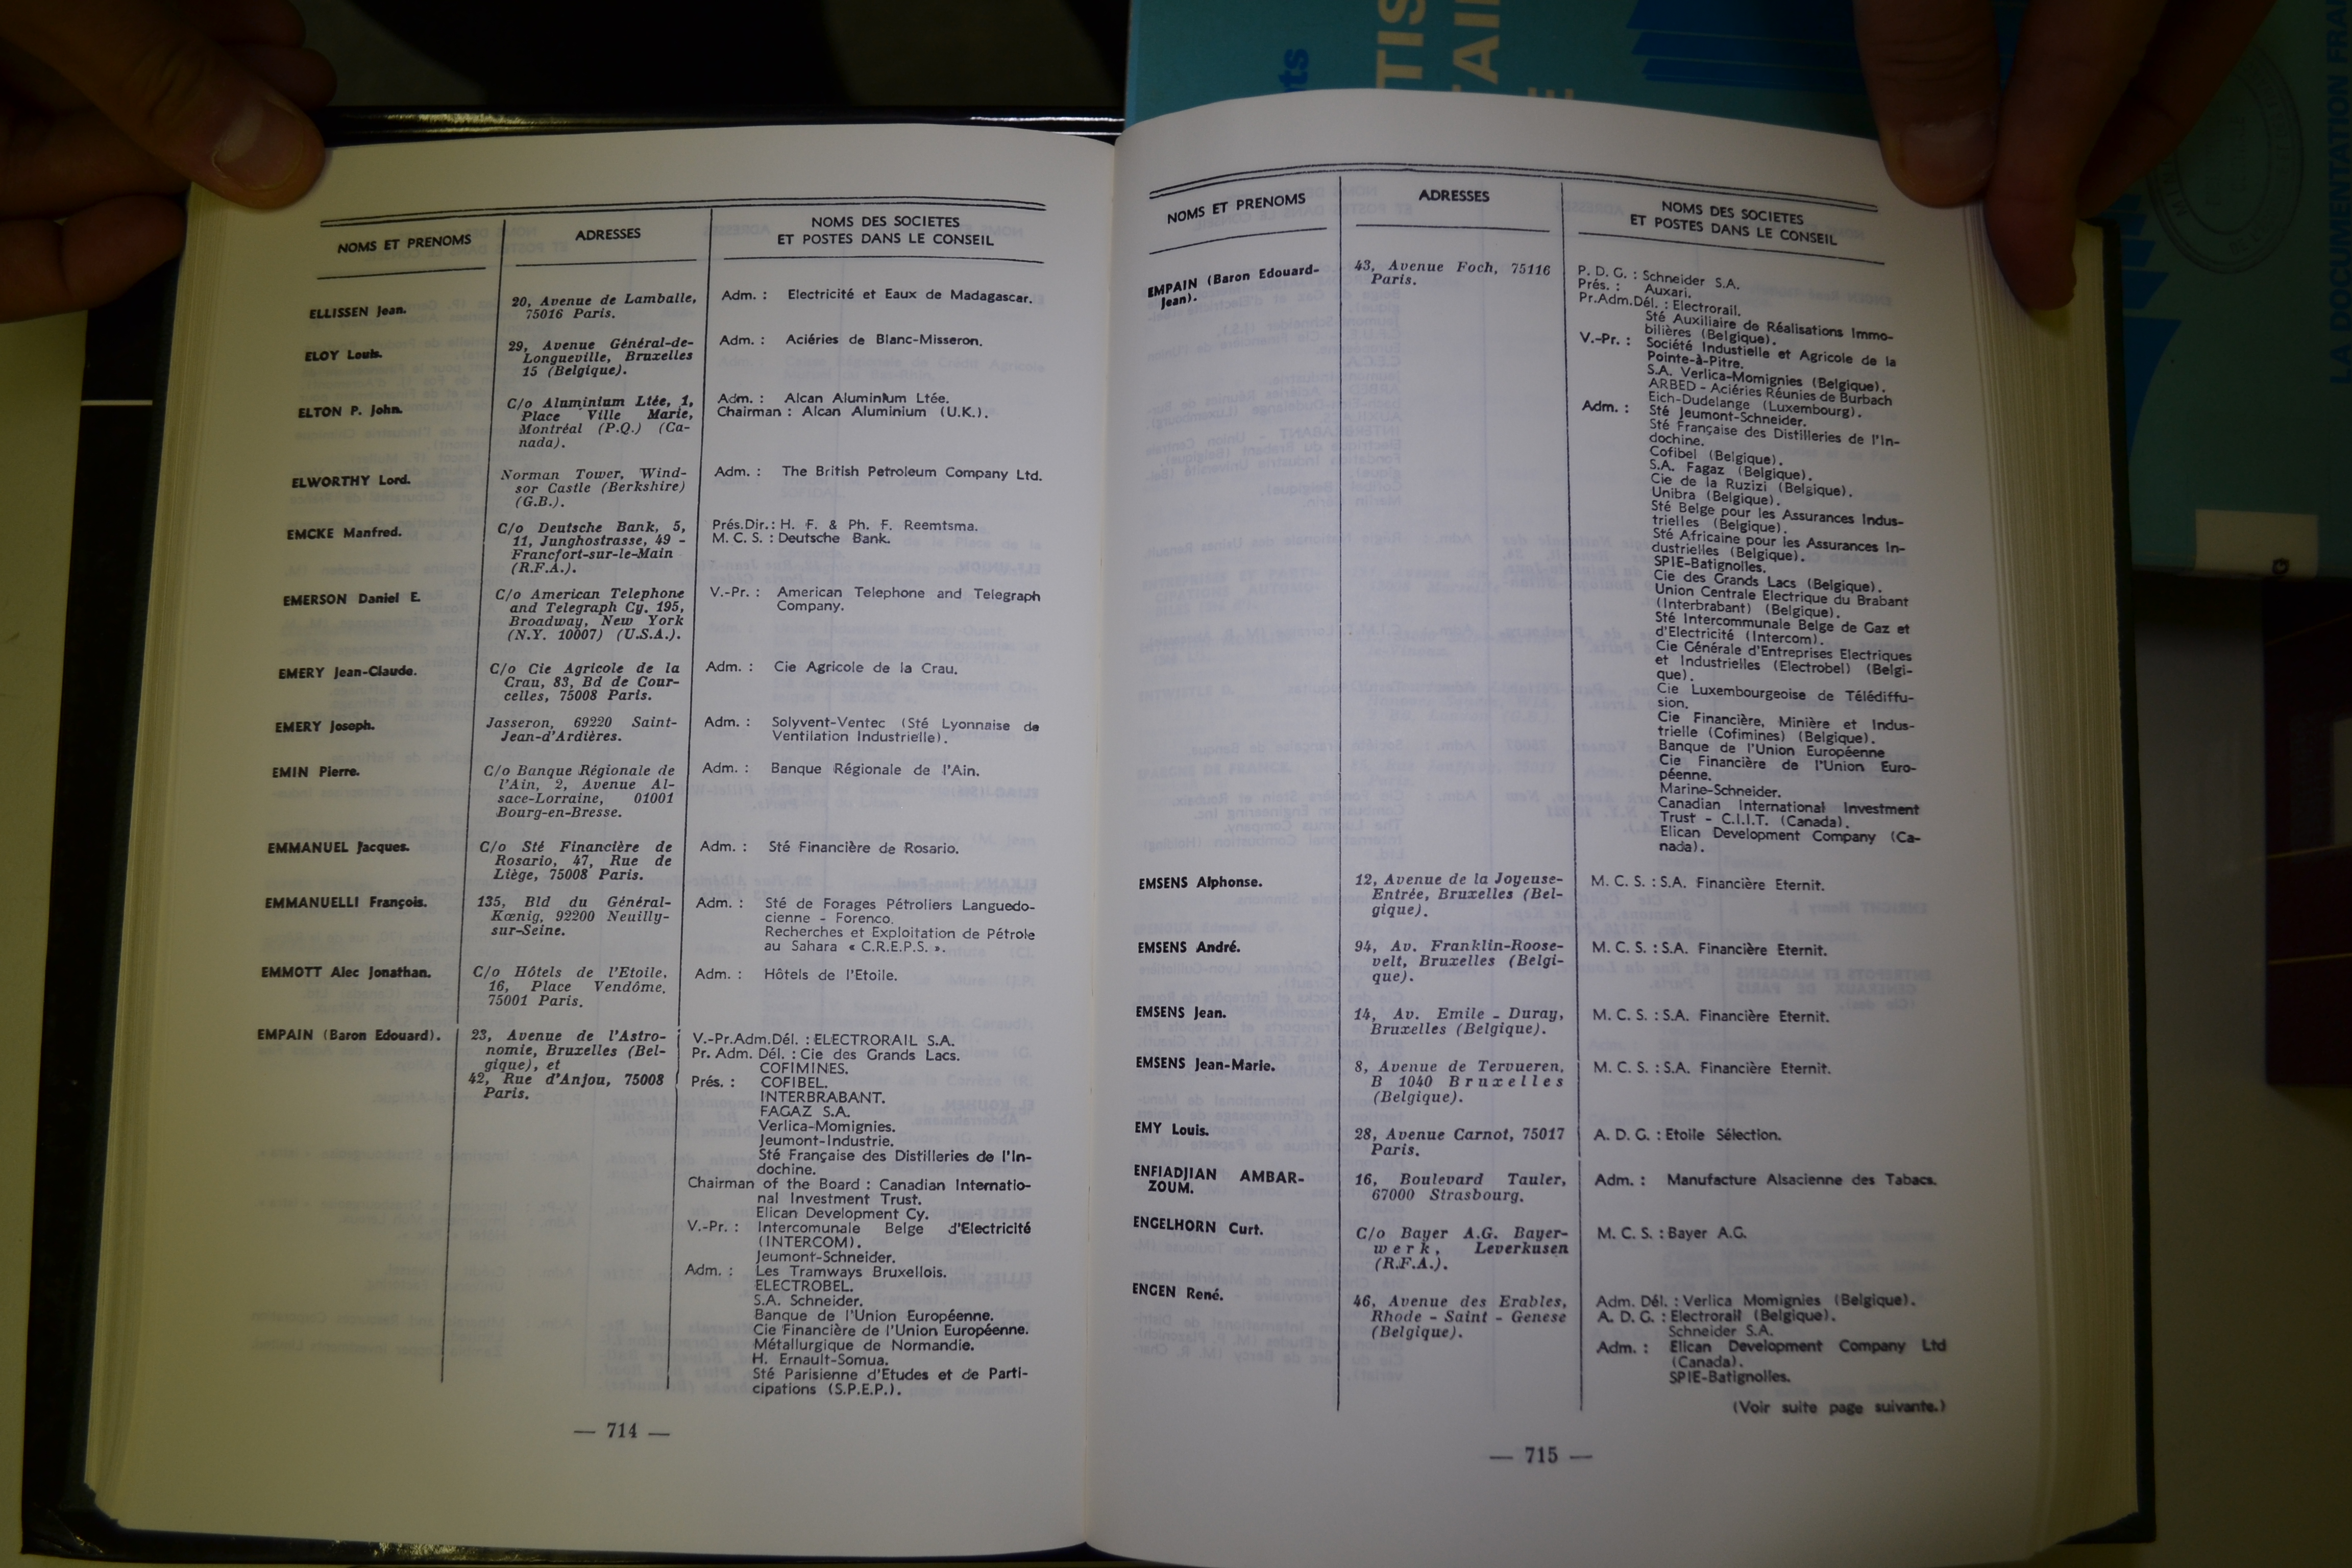 NOMS ET PRENOMS
ADRESSES
NOMS DES SOCIETES
ET POSTES DANS LE CONSEIL
ELLISSEN Jean.
20, Avenue de Lamballe,
75016 Paris.
Adm. : Electricité et Eaux de Madagascar.
ELOY Louis.
29, Avenue Général-de-
Longueville, Bruxelles
15 (Belgique).
Adm. : Aciéries de Blanc-Misseron.
ELTON P. John.
C/o Aluminium Ltée, 1,
Place Ville Marie,
Montréal (P.Q.) (Ca-
nada).
Adm. : Alcan Aluminium Ltée.
Chairman : Alcan Aluminium (U.K.).
ELWORTHY Lord.
Norman Tower, Wind-
sor Castle (Berkshire)
(G.B.).
Adm. : The British Petroleum Company Ltd.
EMCKE Manfred.
C/o Deutsche Bank, 5,
11, Junghostrasse, 49 -
Francfort-sur-le-Main
(R.F.A.).
Prés.Dir. : H. F. & Ph. F. Reemtsma.
M. C. S. : Deutsche Bank.
EMERSON Daniel E.
C/o American Telephone
and Telegraph Cy. 195,
Broadway, New York
(N.Y. 10007) (U.S.A.).
V.-Pr. : American Telephone and Telegraph
Company.
EMERY Jean-Claude.
C/o Cie Agricole de la
Crau, 83, Bd de Cour-
celles, 75008 Paris.
Adm. : Cie Agricole de la Crau.
EMERY Joseph.
Jasseron, 69220 Saint-
Jean-d'Ardières.
Adm. : Solyvent-Ventec (Sté Lyonnaise de
Ventilation Industrielle).
EMIN Pierre.
C/o Banque Régionale de
l'Ain, 2, Avenue Al-
sace-Lorraine, 01001
Bourg-en-Bresse.
Adm. : Banque Régionale de l'Ain.
EMMANUEL Jacques.
C/o Sté Financière de
Rosario, 47, Rue de
Liège, 75008 Paris.
Adm. : Sté Financière de Rosario.
EMMANUELLI François.
135, Bld du Général-
Kœnig, 92200 Neuilly-
sur-Seine.
Adm. : Sté de Forages Pétroliers Languedo-
cienne - Forenco.
Recherches et Exploitation de Pétrole
au Sahara « C.R.E.P.S. ».
EMMOTT Alec Jonathan.
C/o Hôtels de l'Etoile,
16, Place Vendôme,
75001 Paris.
Adm. : Hôtels de l'Etoile.
EMPAIN (Baron Edouard).
23, Avenue de l'Astro-
nomie, Bruxelles (Bel-
gique), et
42, Rue d'Anjou, 75008
Paris.
V.-Pr.Adm.Dél. : ELECTRORAIL S.A.
Pr. Adm. Dél. : Cie des Grands Lacs.
COFIMINES.
Prés. : COFIBEL.
INTERBRABANT.
FAGAZ S.A.
Verlica-Momignies.
Jeumont-Industrie.
Sté Française des Distilleries de l'In-
dochine.
Chairman of the Board : Canadian Internatio-
nal Investment Trust.
Elican Development Cy.
V.-Pr. : Intercomunale Belge d'Electricité
(INTERCOM).
Jeumont-Schneider.
Adm. : Les Tramways Bruxellois.
ELECTROBEL.
S.A. Schneider.
Banque de l'Union Européenne.
Cie Financière de l'Union Européenne.
Métallurgique de Normandie.
H. Ernault-Somua.
Sté Parisienne d'Etudes et de Parti-
cipations (S.P.E.P.).
— 714 —
NOMS ET PRENOMS
ADRESSES
NOMS DES SOCIETES
ET POSTES DANS LE CONSEIL
EMPAIN (Baron Edouard-
Jean).
43, Avenue Foch, 75116
Paris.
P. D. G. : Schneider S.A.
Prés. : Auxari.
Pr.Adm.Dél. : Electrorail.
Sté Auxiliaire de Réalisations Immo-
bilières (Belgique).
V.-Pr. : Société Industielle et Agricole de la
Pointe-à-Pitre.
S.A. Verlica-Momignies (Belgique).
ARBED - Aciéries Réunies de Burbach
Eich-Dudelange (Luxembourg).
Adm. : Sté Jeumont-Schneider.
Sté Française des Distilleries de l'In-
dochine.
Cofibel (Belgique).
S.A. Fagaz (Belgique).
Cie de la Ruzizi (Belgique).
Unibra (Belgique).
Sté Belge pour les Assurances Indus-
trielles (Belgique).
Sté Africaine pour les Assurances In-
dustrielles (Belgique).
SPIE-Batignolles.
Cie des Grands Lacs (Belgique).
Union Centrale Electrique du Brabant
(Interbrabant) (Belgique).
Sté Intercommunale Belge de Gaz et
d'Electricité (Intercom).
Cie Générale d'Entreprises Electriques
et Industrielles (Electrobel) (Belgi-
que).
Cie Luxembourgeoise de Télédiffu-
sion.
Cie Financière, Minière et Indus-
trielle (Cofimines) (Belgique).
Banque de l'Union Européenne
Cie Financière de l'Union Euro-
péenne.
Marine-Schneider.
Canadian International Investment
Trust - C.I.I.T. (Canada).
Elican Development Company (Ca-
nada).
EMSENS Alphonse.
12, Avenue de la Joyeuse-
Entrée, Bruxelles (Bel-
gique).
M. C. S. : S.A. Financière Eternit.
EMSENS André.
94, Av. Franklin-Roose-
velt, Bruxelles (Belgi-
que).
M. C. S. : S.A. Financière Eternit.
EMSENS Jean.
14, Av. Emile - Duray,
Bruxelles (Belgique).
M. C. S. : S.A. Financière Eternit.
EMSENS Jean-Marie.
8, Avenue de Tervueren,
B 1040 Bruxelles
(Belgique).
M. C. S. : S.A. Financière Eternit.
EMY Louis.
28, Avenue Carnot, 75017
Paris.
A. D. G. : Etoile Sélection.
ENFIADJIAN AMBAR-
ZOUM.
16, Boulevard Tauler,
67000 Strasbourg.
Adm. : Manufacture Alsacienne des Tabacs.
ENGELHORN Curt.
C/o Bayer A.G. Bayer-
werk, Leverkusen
(R.F.A.).
M. C. S. : Bayer A.G.
ENGEN René.
46, Avenue des Erables,
Rhode - Saint - Genese
(Belgique).
Adm. Dél. : Verlica Momignies (Belgique).
A. D. G. : Electrorail (Belgique).
Schneider S.A.
Adm. : Elican Development Company Ltd
(Canada).
SPIE-Batignolles.
(Voir suite page suivante.)
— 715 —
ts
TIS
AI
LA DOCUMENTATION FRAN
G